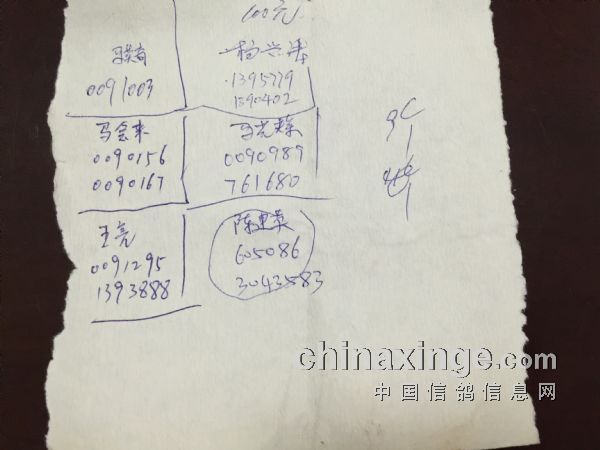 100元
0091003
杨兴
1395779
1390402
马会来
0090156
0090167
0090989
761680
王亮
0091295
1393888
陈
605086
3043583
chinaxinge.com
中国信鸽信息网